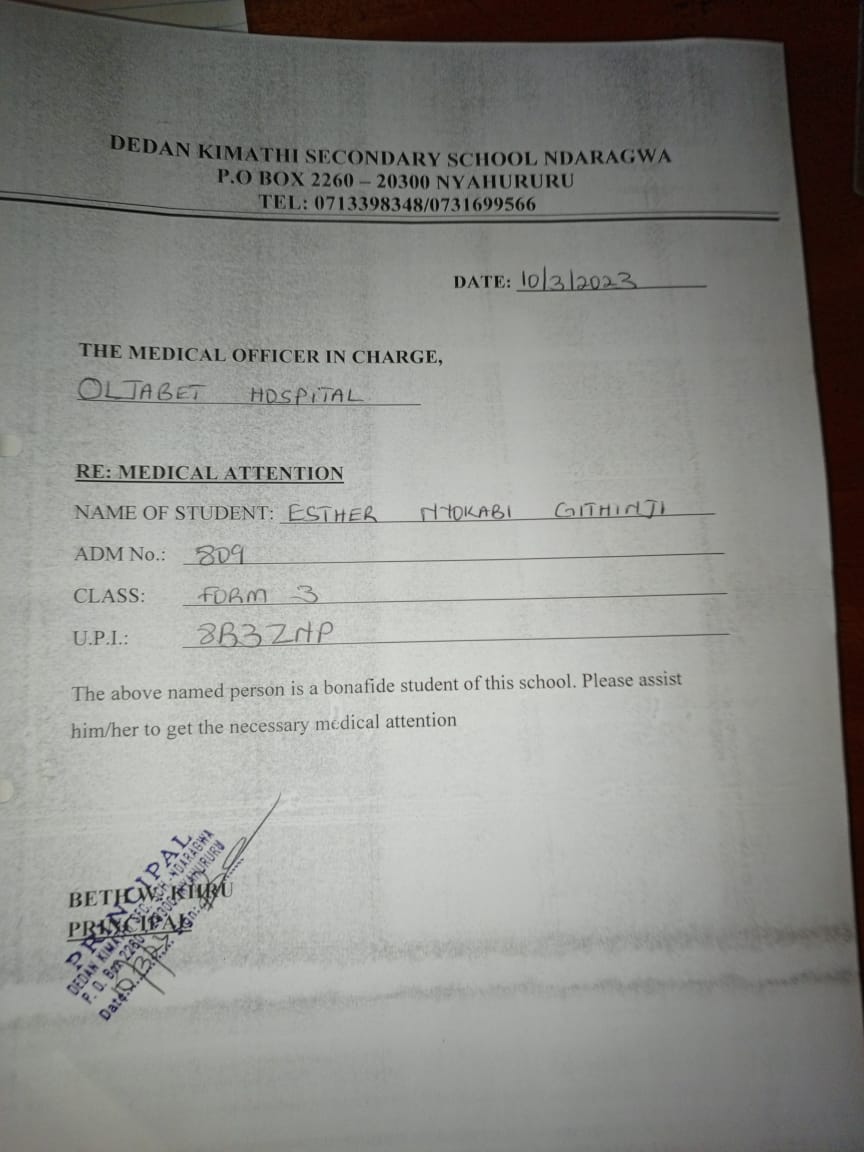 DEDAN KIMATHI SECONDARY SCHOOL NDARAGWA
P.O BOX 2260 – 20300 NYAHURURU
TEL: 0713398348/0731699566
DATE: 10/3/2023
THE MEDICAL OFFICER IN CHARGE,
OLJABET HOSPITAL
RE: MEDICAL ATTENTION
NAME OF STUDENT: ESTHER NYOKABI GITHINJI
ADM No.: 809
CLASS: FORM 3
U.P.I.: 8B3ZNP
The above named person is a bonafide student of this school. Please assist
him/her to get the necessary medical attention
BETH W. KIIRU
PRINCIPAL
PRINCIPAL
DEDAN KIMATHI SEC. SCH. NDARAGWA
P. O. Box 2260 NYAHURURU
Date: Sign: